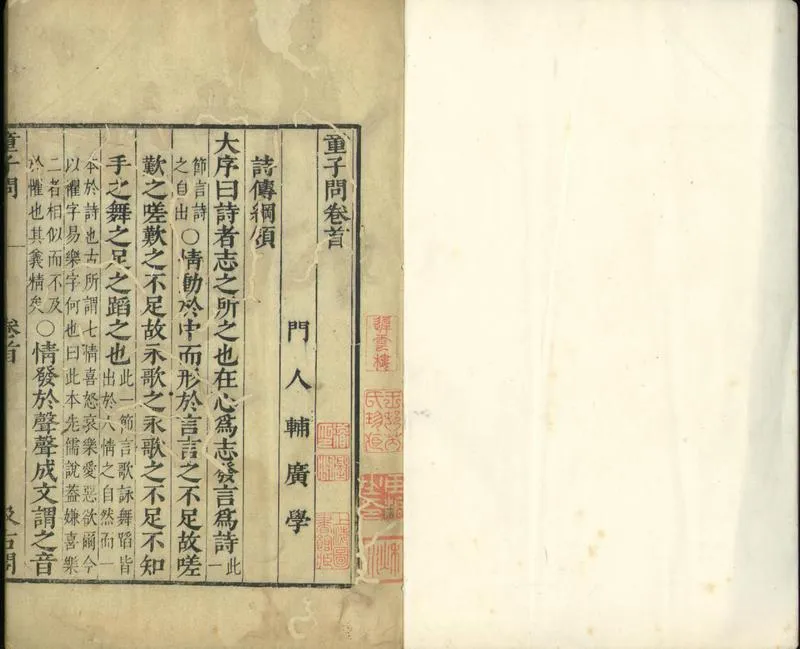 童子問卷首
門人輔廣學
詩傳綱領
大序曰詩者志之所之也在心爲志發言爲詩此一
節言詩之自出○情動於中而形於言言之不足故嗟
歎之嗟歎之不足故永歌之永歌之不足不知
手之舞之足之蹈之也此一節言歌詠舞蹈皆出於人情之自然而一
本於詩也古所謂七情喜怒哀樂愛惡欲爾今
以懼字易樂字何也曰此本先儒說蓋嫌喜樂
二者相似而不及於懼也其義精矣○情發於聲聲成文謂之音
童子問
卷首
汲古閣